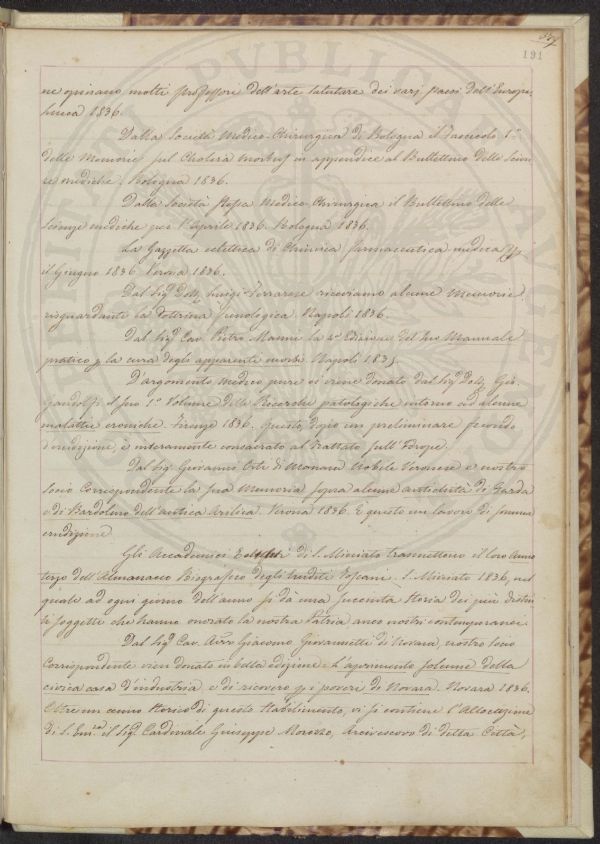 191
ne opinano molti professori dell'arte salutare dei varj paesi dell'Europa.
Lucca 1836.
Dalla Società Medico-Chirurgica di Bologna il Fascicolo 1º
delle Memorie sul Cholèra morbus in appendice al Bullettino delle Scien
ze mediche. Bologna 1836.
Dalla Società stessa Medico-Chirurgica il Bullettino delle
Scienze mediche per l'Aprile 1836. Bologna 1836.
La Gazzetta eclettica di Chimica farmaceutica medica
il Giugno 1836. Verona 1836.
Dal Sig. Dott. Luigi Ferrarese riceviamo alcune Memorie
risguardante la Dottrina frenologica. Napoli 1836.
Dal Sig. Cav. Pietro Manni la 4ª Edizione del suo Manuale
pratico p la cura degli apparente morti. Napoli 1835.
D'argomento Medico pure ci viene donato dal Sig. Dott. Gio.
Gandolfi il suo 1º Volume delle Ricerche patologiche intorno ad alcune
malattie croniche. Firenze 1836. Questo, dopo un preliminare fecondo
d'erudizione, è interamente consacrato al Trattato sull'
Dal Sig. Giovanni Orti di Manara Nobile Veronese e nostro
Socio Corrispondente la sua Memoria sopra alcune antichità di Garda
e di Bardolino dell'antica Arilica. Verona 1836. E questo un lavoro di somma
erudizione.
Gli Accademici di S. Miniato trasmettono il loro Anno
terzo dell'Almanacco Biografico degli Eruditi Toscani. S. Miniato 1836, nel
quale ad ogni giorno dell'anno si dà una succinta storia dei più distin
ti soggetti che hanno onorato la nostra Patria anco nostri contemporanei.
Dal Sig. Cav. Avvo Giacomo Giovannetti di Novara, nostro Socio
Corrispondente vien donato in bella edizione = L'aprimento solenne della
civica casa d'industria, e di ricovero pi poveri di Novara. Novara 1836.
Oltre un cenno storico di questo stabilimento, vi si contiene l'Allocuzione
di S. Em.za il Sig. Cardinale Giuseppe Morozzo, Arcivescovo di detta Città,